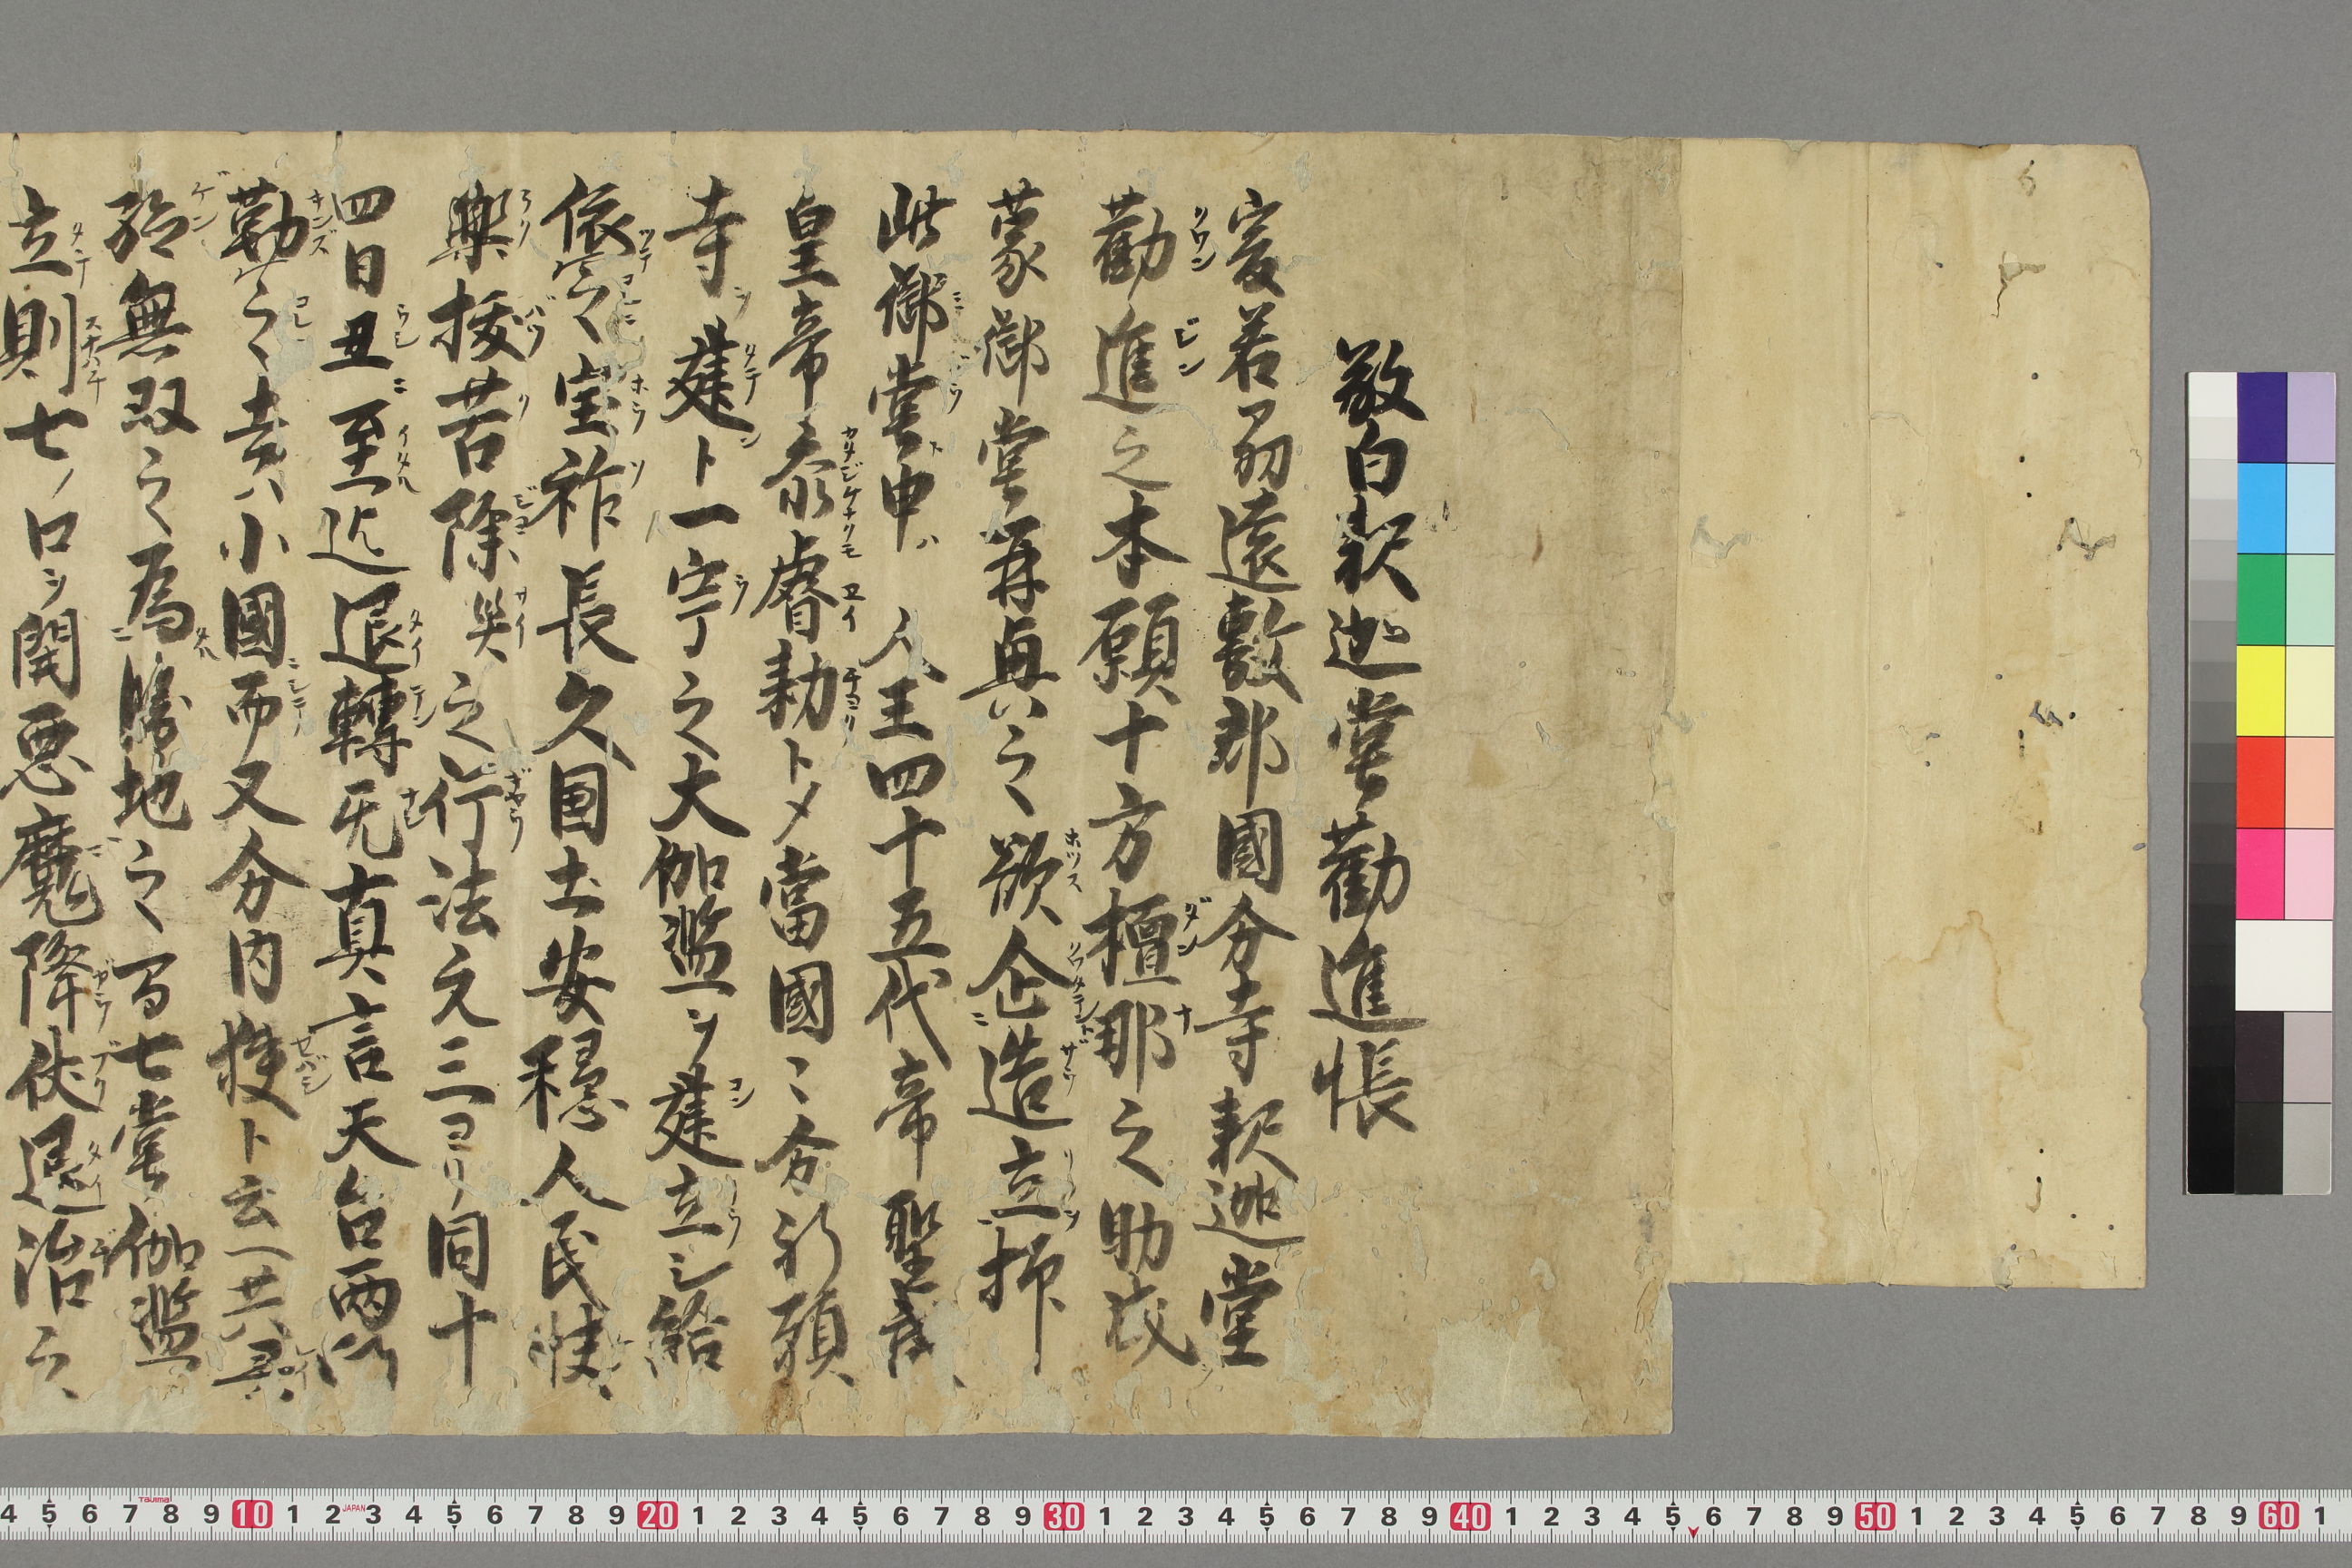 敬白釈迦堂勧進帳
爰若刕遠敷郡國分寺釈迦堂
勧進之本願十方檀那之助成
蒙御堂再興之欲企造立抑
此御堂申ハ人王四十五代帝聖武
皇帝忝膚勅トメ當國々分祈願
寺建ト一宇之大伽藍ヲ建立シ給
依之宝祚長久国土安穏人民快
楽抜苦除災之行法元三ヨリ同十
四日丑ニ至迄退轉无真言天台両
勤之、夫小國而又分内狭ト云共
験無双之為勝地之間七堂伽藍
立則七ノ口ヲ開悪魔降伏退治之